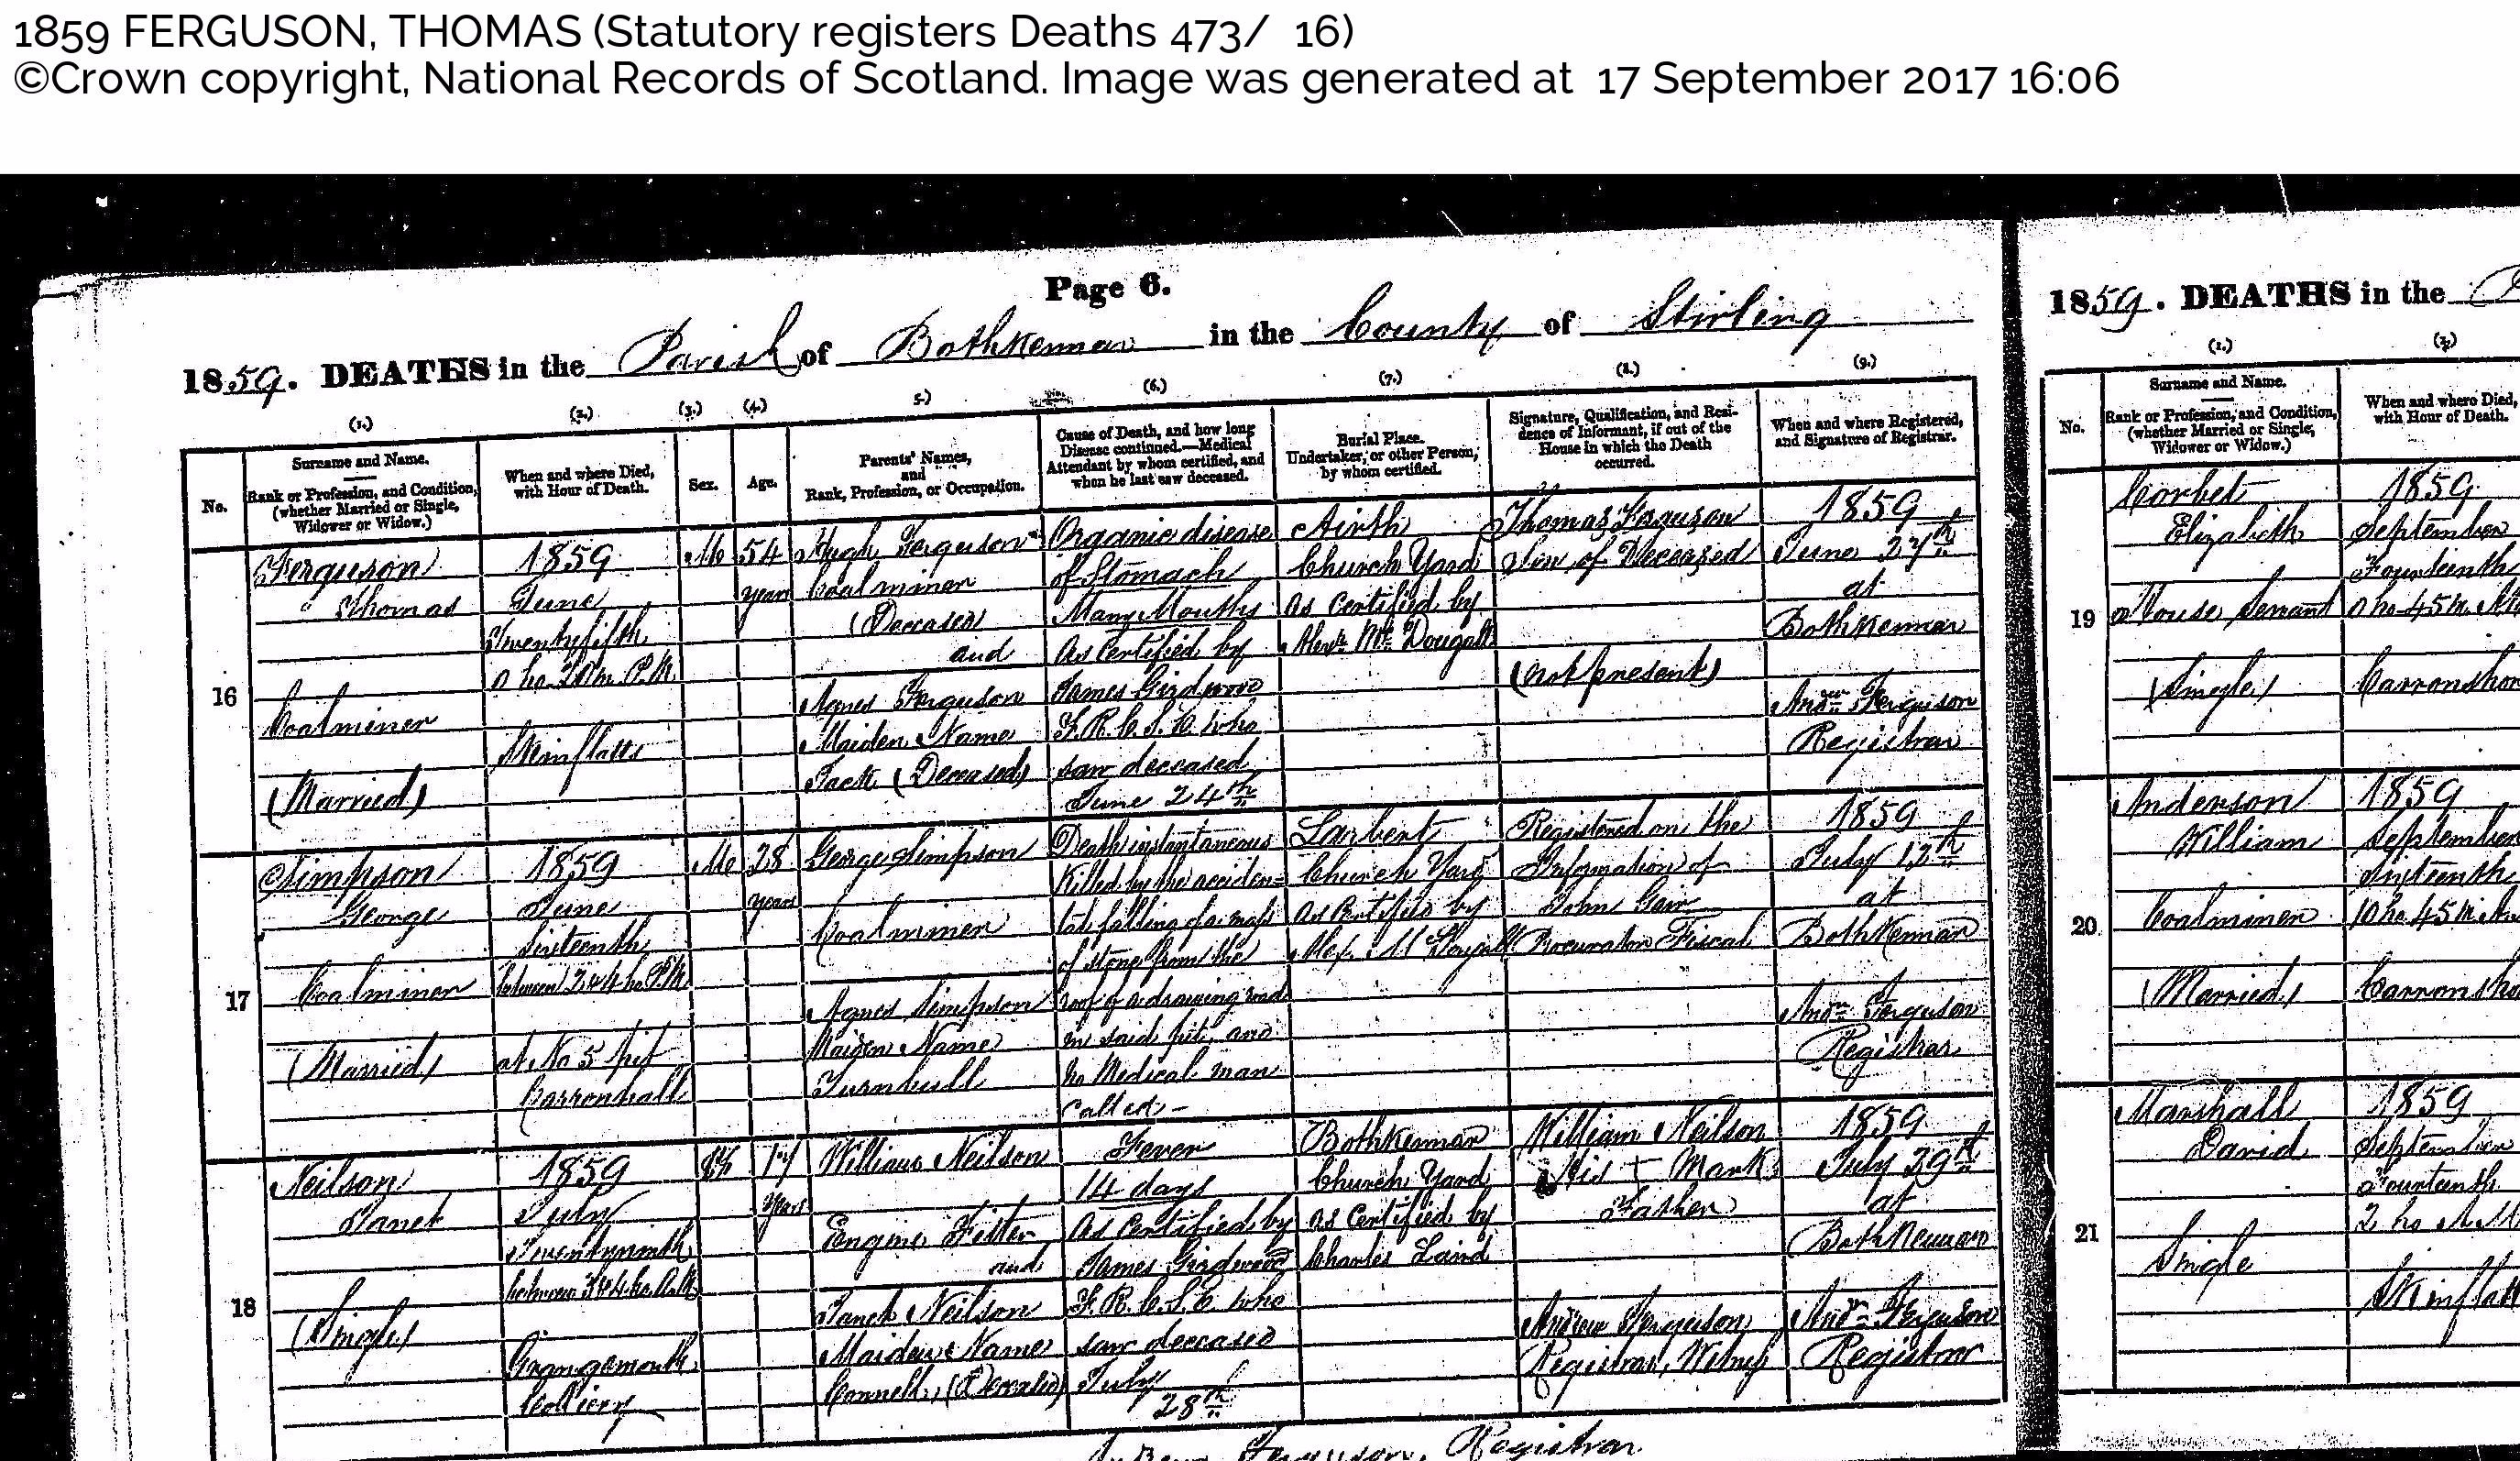 1859 FERGUSON, THOMAS (Statutory registers Deaths 473/ 16)
©Crown copyright, National Records of Scotland. Image was generated at 17 September 2017 16:06
Page 6.
1859. DEATHS in the Parish of Bothkennar in the County of Stirling
(1.) (2.) (3.) (4.) 5.) (6.) (7.) (8.) (9.)
No.
Surname and Name.
Rank or Profession, and Condition,
(whether Married or Single,
Widower or Widow.)
When and where Died,
with Hour of Death.
Sex.
Age.
Parents' Names,
and
Rank, Profession, or Occupation.
Cause of Death, and how long
Disease continued.—Medical
Attendant by whom certified, and
when he last saw deceased.
Burial Place.
Undertaker, or other Person,
by whom certified.
Signature, Qualification, and Resi-
dence of Informant, if out of the
House in which the Death
occurred.
When and where Registered,
and Signature of Registrar.
16
Ferguson
" Thomas
Coalminer
(Married)
1859
June
Twentyfifth
0 ho. 20 m. P.M.
Skinflatts
M
54
years
Hugh Ferguson
Coalminer
(Deceased)
and
Agnes Ferguson
Maiden Name
Jack (Deceased)
Organic disease
of Stomach
Many Months
As Certified by
James Girdwood
F.R.C.S.E. who
saw deceased
June 24th
Airth
Church Yard
As Certified by
Alexr. Mc. Dougall
Thomas Ferguson
Son of Deceased
(not present)
1859
June 27th
at
Bothkennar
Andw. Ferguson
Registrar
17
Simpson
George
Coalminer
(Married)
1859
June
Sixteenth
between 3 & 4 ho. P.M.
at No 5 pit
Carronhall
M
28
years
George Simpson
Coalminer
Agnes Simpson
Maiden Name
Turnbull
Death instantaneous
Killed by the acciden=
tal falling of a mass
of stone from the
roof of a drawing road
in said pit, and
no Medical man
Called -
Larbert
Church Yard
As Certified by
Alex. McDougall
Registered on the
Information of
John Gair
Procurator Fiscal
1859
July 12th
at
Bothkennar
Andw. Ferguson
Registrar
18
Neilson
Janet
(Single)
1859
July
Twentyninth
between 3 & 4 ho. A.M.
Grangemouth
Colliery
F
17
Years
William Neilson
Engine Fitter
and
Janet Neilson
Maiden Name
Connell, (Deceased)
Fever
14 days
As Certified by
James Girdwood
F.R.C.S.E. who
saw deceased
July
28th
Bothkennar
Church Yard
As Certified by
Charles Laird
William Neilson
His + Mark
Father
Andrew Ferguson
Registrar, Witness
1859
July 29th
at
Bothkennar
Andw. Ferguson
Registrar
Andrew Ferguson, Registrar
1859. DEATHS in the
(1.)
No.
Surname and Name.
Rank or Profession, and Condition,
(whether Married or Single,
Widower or Widow.)
When and where Died,
with Hour of Death.
19
Corbet
Elizabeth
House Servant
(Single)
1859
September
Fourteenth
0 ho 45 m.
20
Anderson
William
Coalminer
(Married)
1859
September
Sixteenth
10 ho 45 m
21
Marshall
David
Single
1859
September
Fourteenth
2 ho